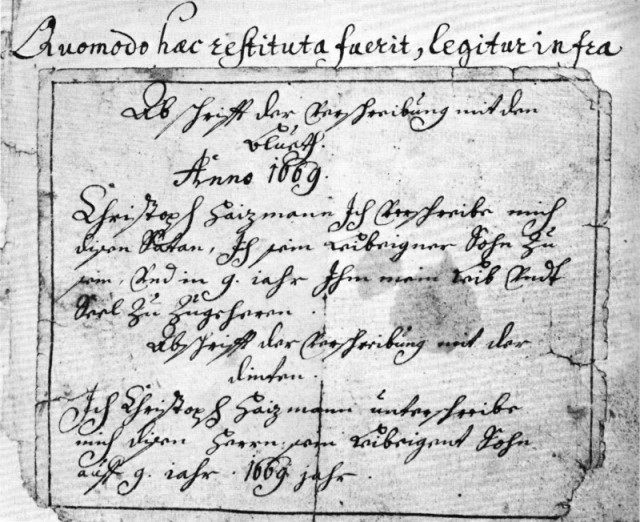 Quomodo haec restituta fuerit, legitur infra
Abschrifft der Verschreibung mit den
Blueth.
Anno 1669.
Christoph Haizmann Ich Verschreibe mich
disen Satan, Ich sein Leibeigner Sohn Zu
sein, Und in 9. iahr Ihm mein Leib Undt
Seel Zu Zugeheren.
Abschrifft der Verschreibung mit der
dinten.
Ich Christoph Haizmann unterschreibe
mich disen Herrn, sein Leibeigent Sohn
auff 9. iahr. 1669 jahr.